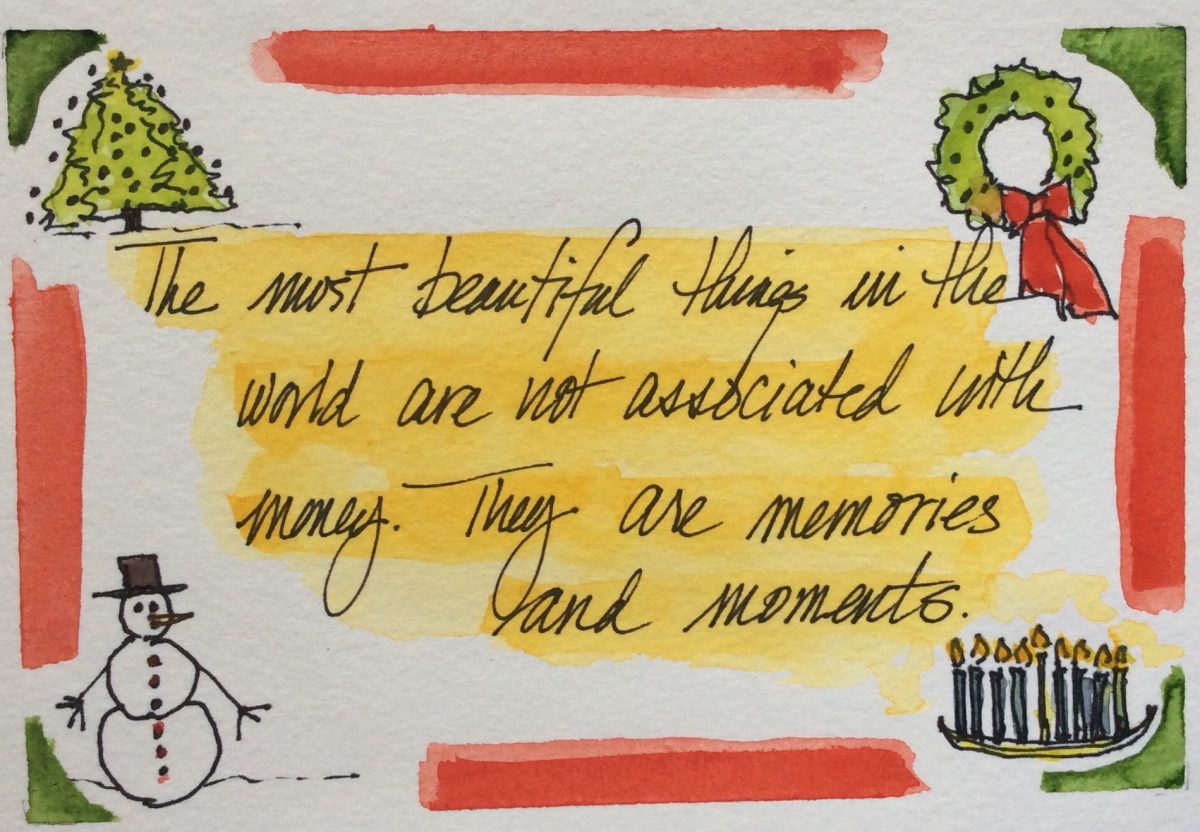 The most beautiful things in the
world are not associated with
money. They are memories
and moments.